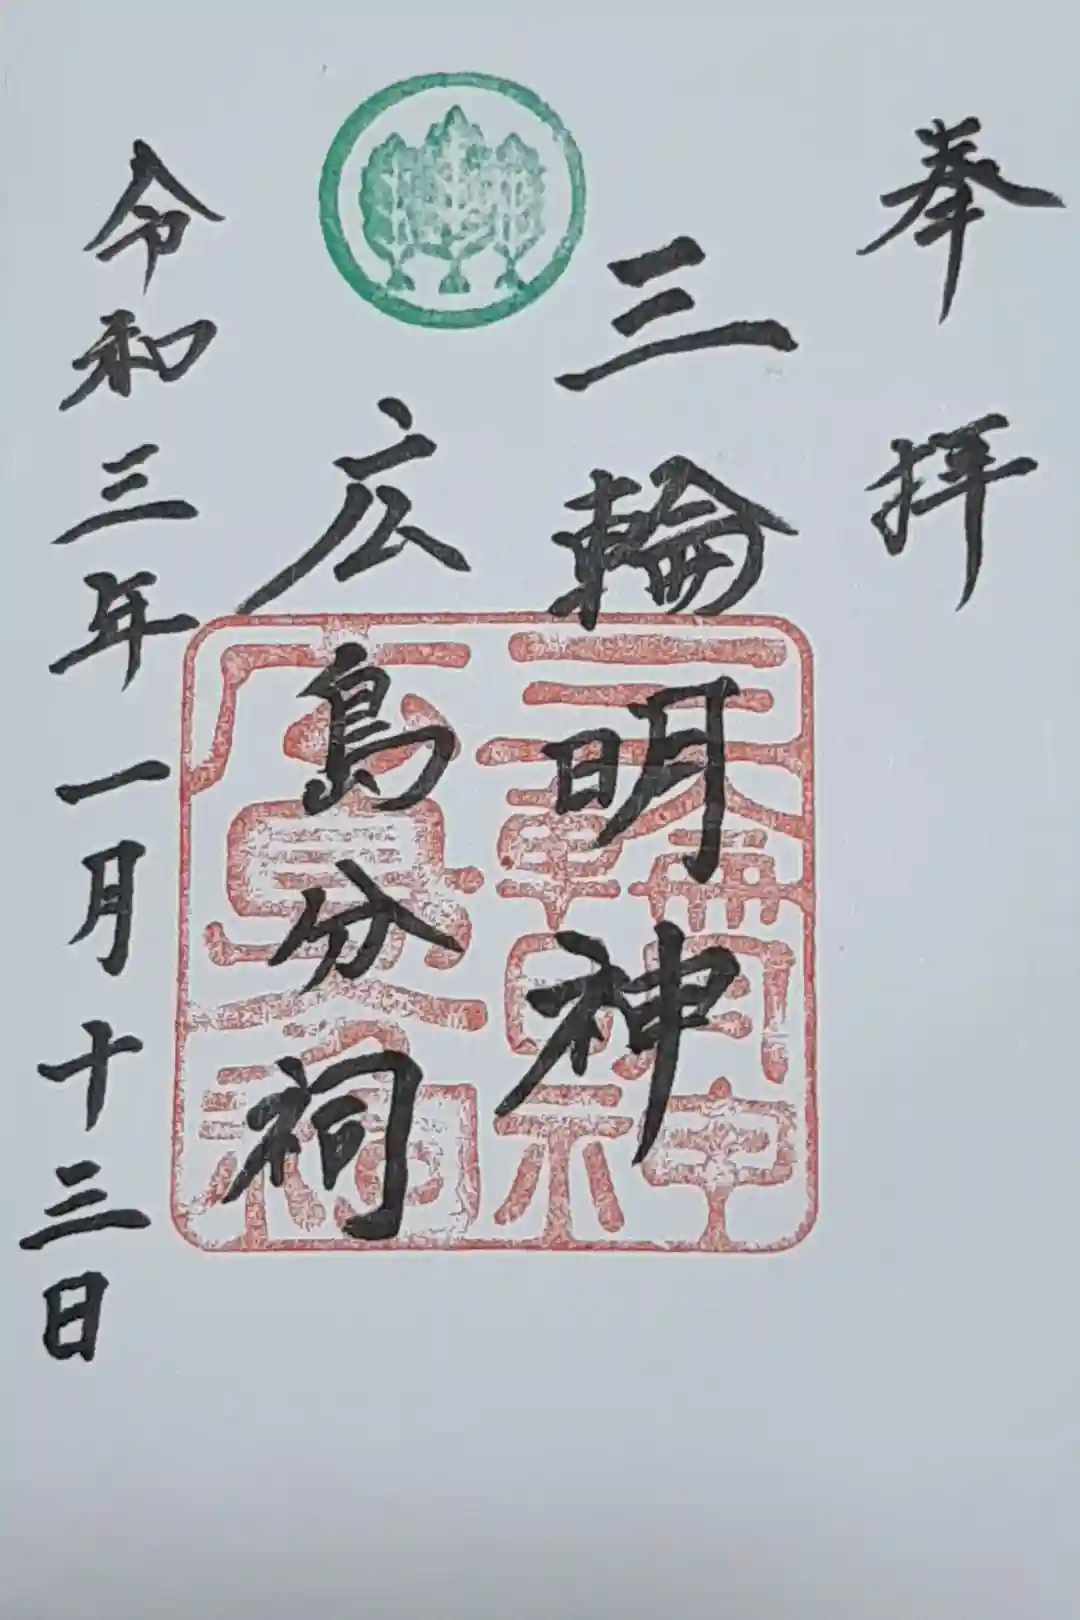 奉拝
三輪明神
広島分祠
令和三年一月十三日
三輪明神
広島分祠